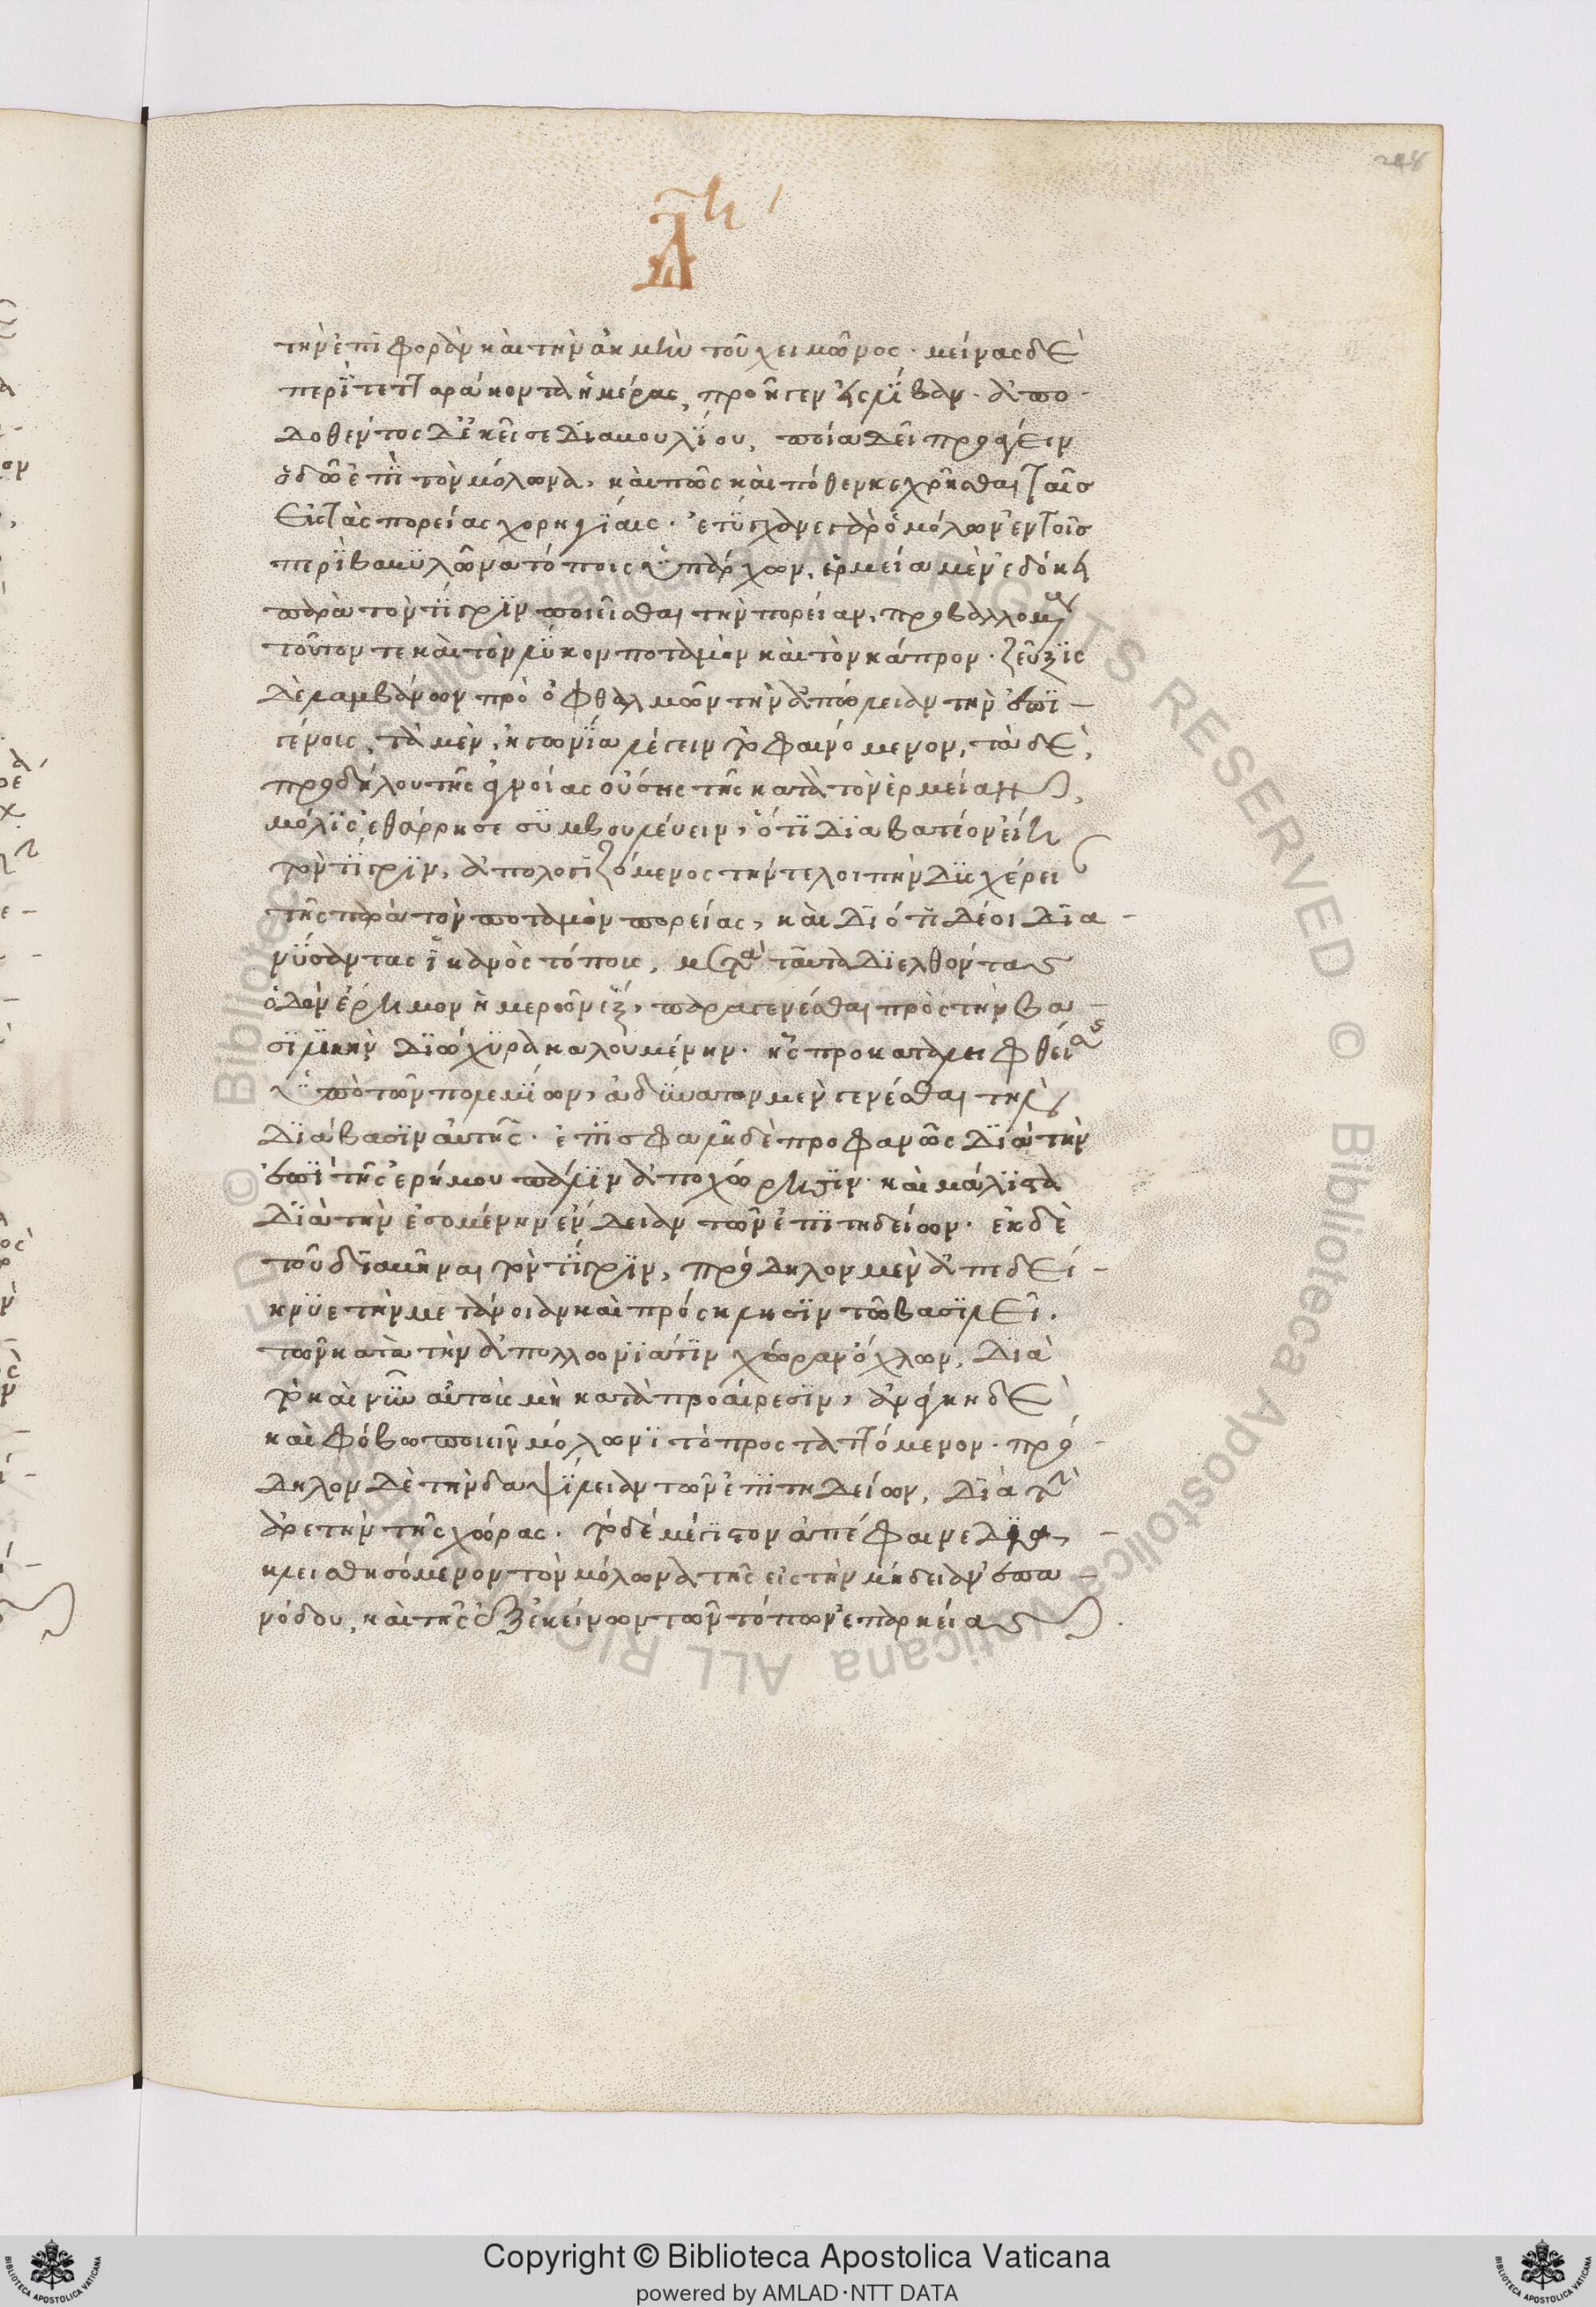 248
τὴν ἐπιφορὰν καὶ τὴν ἀκμὴν τοῦ χειμῶνος · μείνας δὲ
περὶ τετταράκοντα ἡμέρας, προῆγεν εἰς λίβαν · ἀπο
δοθέντος δ' ἐκεῖσε διαβουλίου, ποία δεῖ προάγειν
ὁδῷ ἐπὶ τὸν μόλωνα, καὶ πῶς καὶ πόθεν κεχρῆσθαι ταῖς
εἰς τὰς πορείας χορηγίαις · ἐτύγχανε γὰρ ὁ μόλων ἐν τοῖς
περὶ βαβυλῶνα τόποις ὑπάρχων, ἑρμεία μὲν ἐδόκει
παρὰ τὸν τίγριν ποιεῖσθαι τὴν πορείαν, προβαλλομένους
τοῦτόν τε καὶ τὸν λύκον ποταμὸν καὶ τὸν κάπρον · ζεῦξις
δὲ λαμβάνων πρὸ ὀφθαλμῶν τὴν ἀπώλειαν τὴν ἐπὶ
γένοις, τὰ μὲν, ἠγωνία λέγειν τὸ φαινόμενον, τὰ δὲ,
προδήλου τῆς ἀγνοίας οὔσης τῆς κατὰ τὸν ἑρμείαν,
μόλις ἐθάρρησε συμβουλεύειν, ὅτι διαβατέον εἴη
τὸν τίγριν, ἀπολογιζόμενος τήν τε λοιπὴν δυσχέρει
τῆς παρὰ τὸν ποταμὸν πορείας, καὶ διότι δέοι δια
νύσαντας ἱκανοὺς τόπους, μετὰ ταῦτα διελθόντας
ὁδὸν ἔρημον ἡμερῶν ἓξ, παραγενέσθαι πρὸς τὴν βα
σιλικὴν διώχυρα καλουμένην · ἧς προκαταληφθείσης
ὑπὸ τῶν πολεμίων, ἀδύνατον μὲν γενέσθαι τὴν
διάβασιν αὐτῆς · ἐπισφαλῆ δὲ προφανῶς διὰ τὴν
ἐπὶ τῆς ἐρήμου πάλιν ἀποχώρησιν · καὶ μάλιστα
διὰ τὴν ἐσομένην ἔνδειαν τῶν ἐπιτηδείων · ἐκ δὲ
τοῦ διαβῆναι τὸν τίγριν, πρόδηλον μὲν ἀπεδεί
κνυε τὴν μετάνοιαν καὶ πρόσκλησιν τῷ βασιλεῖ ·
τῶν κατὰ τὴν ἀπολλωνιάτιν χώραν ὄχλων, διὰ
τὸ καὶ νῦν αὐτοὺς μὴ κατὰ προαίρεσιν, ἀνάγκη δὲ
καὶ φόβῳ ποιεῖν μόλωνι τὸ προσταττόμενον · πρό
δηλον δὲ τὴν δαψίλειαν τῶν ἐπιτηδείων, διὰ τὴν
ἀρετὴν τῆς χώρας · τὸ δὲ μέγιστον ἀπέφαινε δια
κλεισθησόμενον τὸν μόλωνα τῆς εἰς τὴν μηδείαν ἐπα
νόδου, καὶ τῆς ἐξ ἐκείνων τῶν τόπων ἐπαρκείας
Copyright © Biblioteca Apostolica Vaticana
powered by AMLAD·NTT DATA